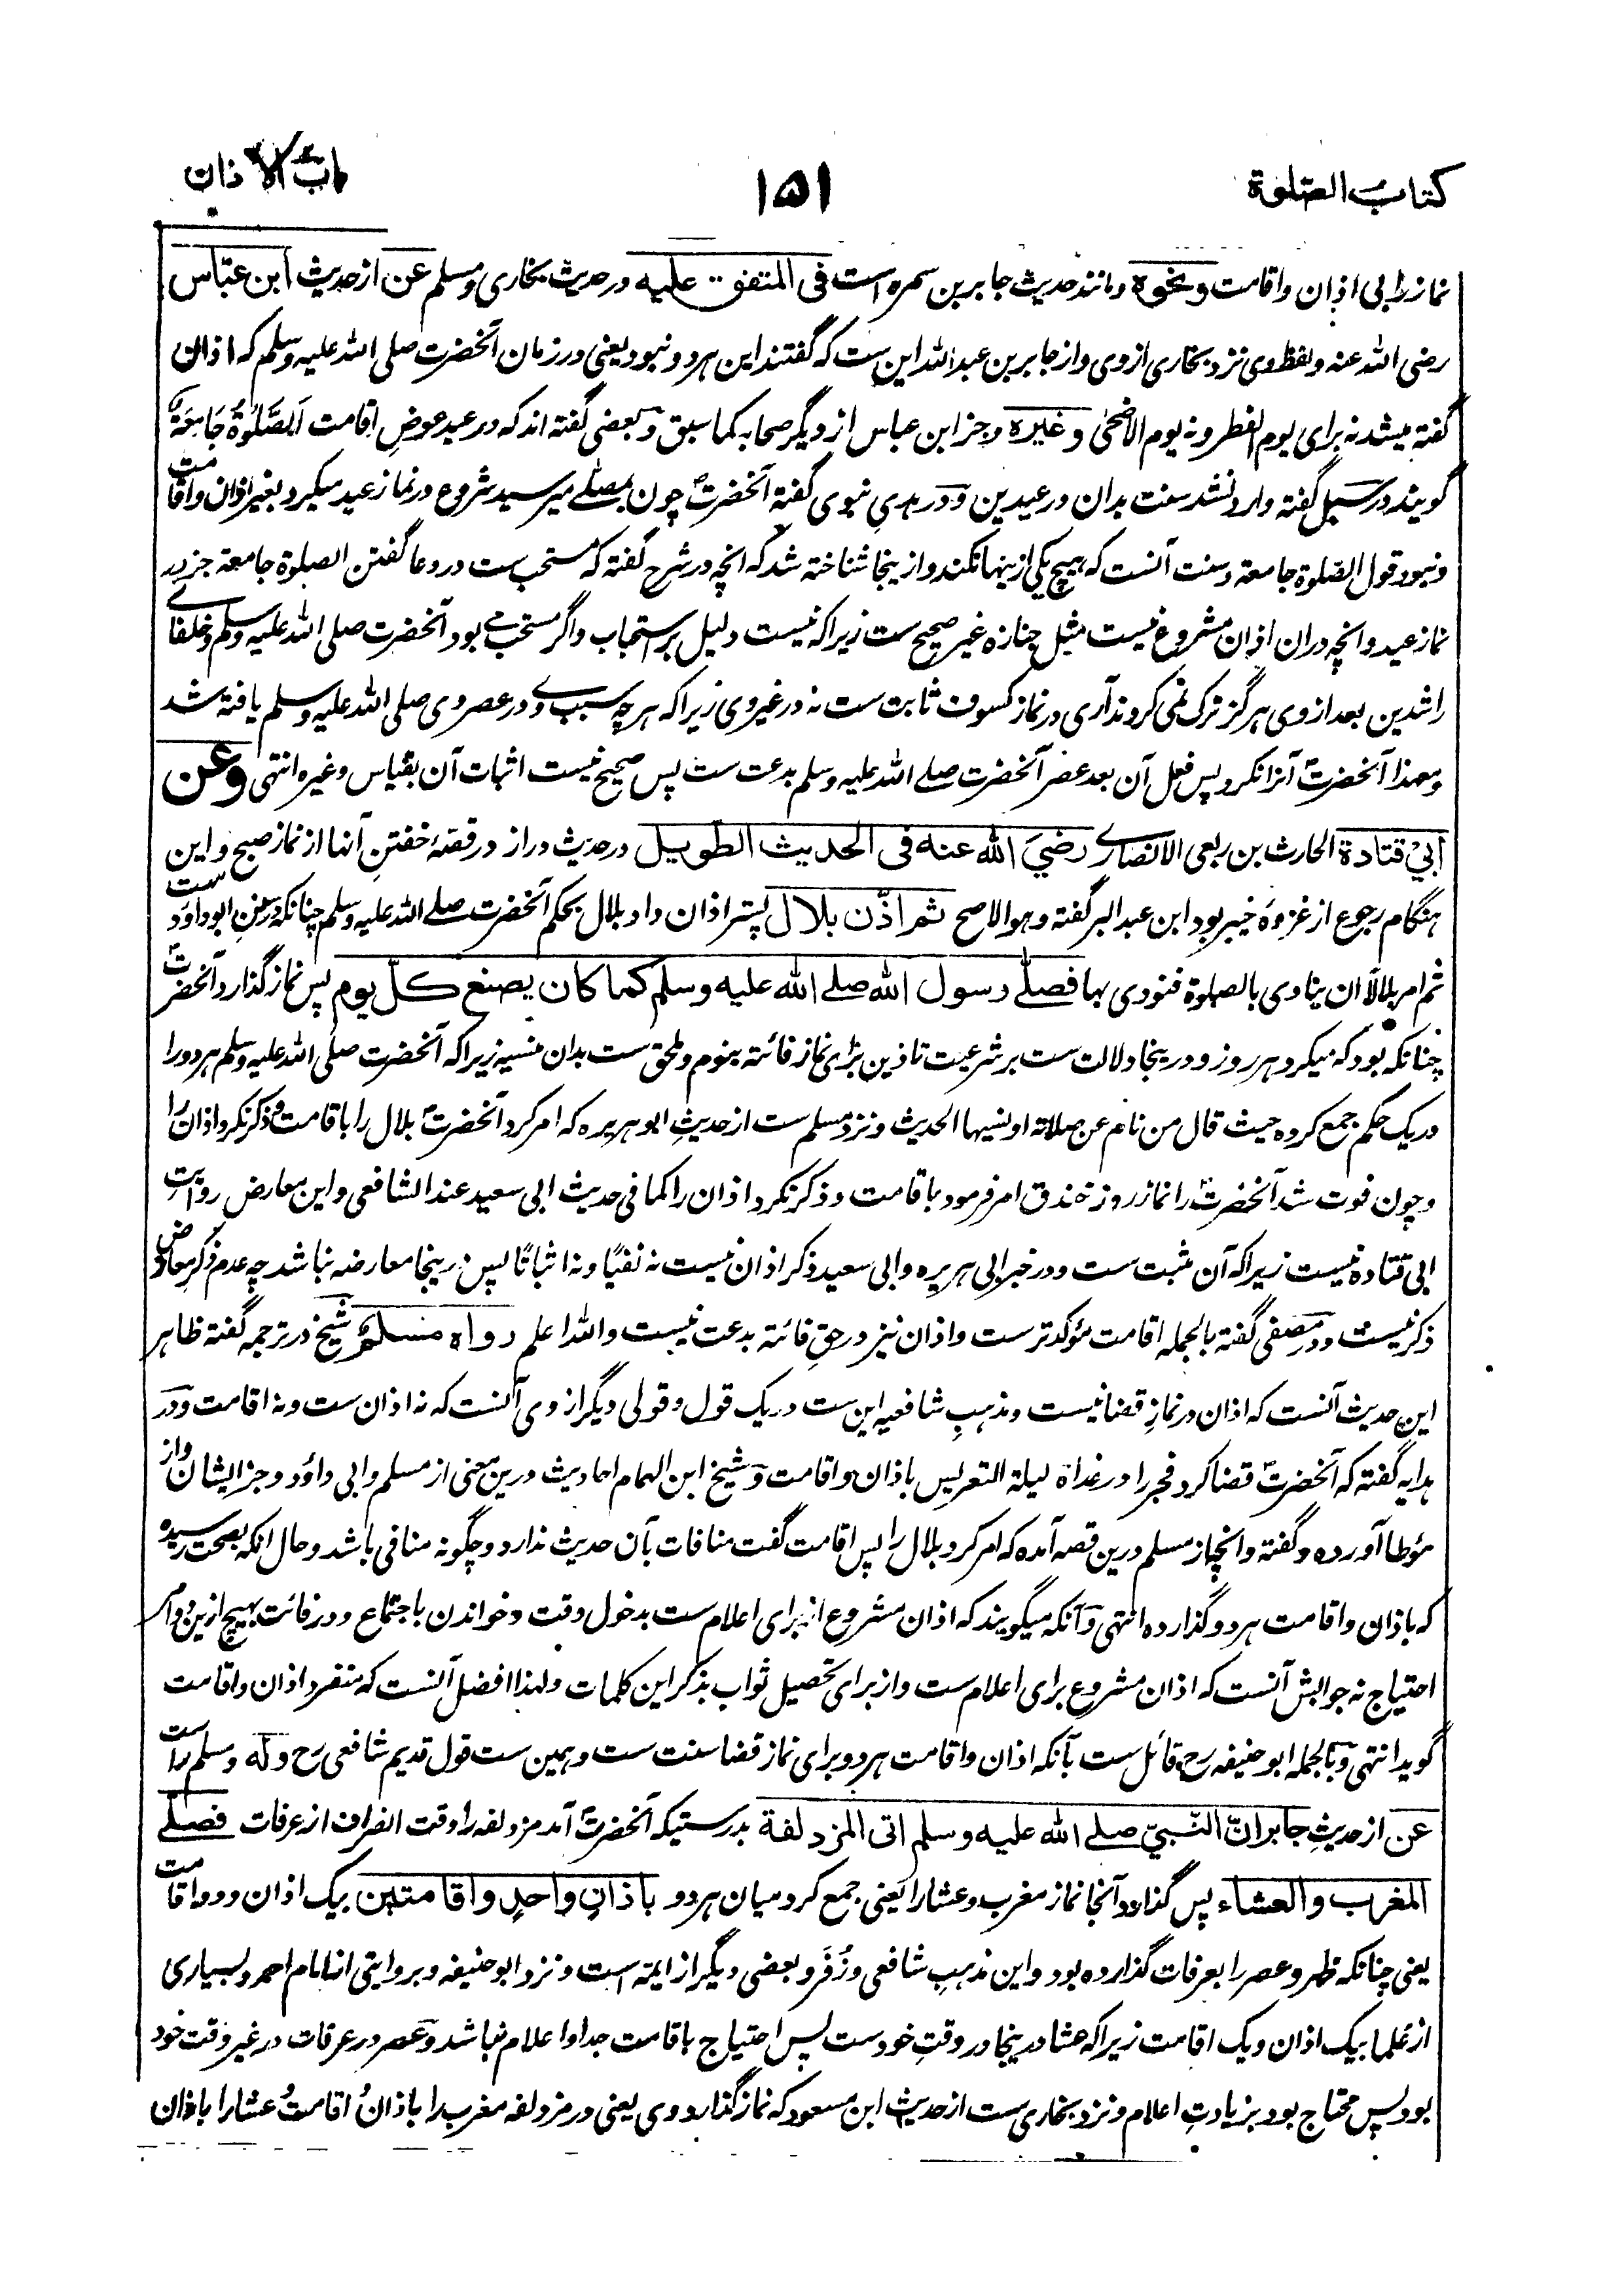 کتاب الصلوة
۱۵۱
باب الاذان
نماز را بی اذان واقامت ونحوه ومانند حدیث جابر بن سمره است فی المتفق علیه در حدیث بخاری ومسلم عن از حدیث ابن عباس
رضی الله عنه ولفظ وی نزد بخاری از وی واز جابر بن عبدالله این ست که گفتند این هر دو نبود یعنی در زمان آنحضرت صلی الله علیه وسلم که اذان
گفته میشد نه برای یوم الفطر ونه یوم الاضحی وغیره وجز ابن عباس از دیگر صحابه کما سبق وبعضی گفته اند که در عید عوض اقامت اَلصَّلٰوةُ جَامِعَةٌ
گویند در سبل گفته وارد نشد سنت بدان در عیدین ودر هدی نبوی گفته آنحضرت چون بمصلے میرسید شروع در نماز عید میکرد بغیر اذان واقامت
ونبود قول الصلوة جامعة وسنت آنست که هیچ یکی ازینها نکند وازینجا شناخته شد که انچه در شرح گفته که مستحب ست در دعا گفتن الصلوة جامعة جز در
نماز عید وانچه دران اذان مشروع نیست مثل جنازه غیر صحیح ست زیرا که نیست دلیل بر استحباب واگر مستحب می بود آنحضرت صلی الله علیه وسلم وخلفاے
راشدین بعد از وی هرگز ترک نمی کردند آری در نماز کسوف ثابت ست نه در غیر وی زیرا که هر چه سببے در عصر وی صلی الله علیه وسلم یافته شد
ومعهذا آنحضرت آنرا نکرد پس فعل آن بعد عصر آنحضرت صلے الله علیه وسلم بدعت ست پس صحیح نیست اثبات آن بقیاس وغیره انتهی وعن
ابی قتادة الحارث بن ربعی الانصارے رضی الله عنه فی الحدیث الطویل در حدیث دراز در قصهٔ خفتن آنها از نماز صبح واین
هنگام رجوع از غزوهٔ خیبر بود ابن عبدالبر گفته وهو الاصح ثم اذّن بلال پستر اذان داد بلال بحکم آنحضرت صلے الله علیه وسلم چنانکه در سنن ابوداود ست
ثم امر بلالًا ان ینادی بالصلوة فنودی بها فصلّے رسول الله صلے الله علیه وسلم کما کان یصنع کلّ یوم پس نماز گذارد آنحضرت
چنانکه بود که میکرد هر روز ودرینجا دلالت ست بر شرعیت تاذین برای نماز فائته بنوم وملحق ست بدان منسیه زیرا که آنحضرت صلی الله علیه وسلم هر دو را
در یک حکم جمع کرده حیث قال من نام عن صلاته او نسیها الحدیث ونزد مسلم ست از حدیث ابو هریره که امر کرد آنحضرت بلال را باقامت وذکر نکرد اذان را
وچون فوت شد آنحضرت را نماز روز خندق امر فرمود باقامت وذکر نکرد اذان را کما فی حدیث ابی سعید عند الشافعی واین معارض روایت
ابی قتاده نیست زیرا که آن مثبت ست ودر خبر ابی هریره وابی سعید ذکر اذان نیست نه نفیًا ونه اثباتًا پس درینجا معارضه نباشد چه عدم ذکر معارض
ذکر نیست ودر مصفی گفته بالجمله اقامت مؤکد ترست واذان نیز در حق فائته بدعت نیست والله اعلم رواه مسلم شیخ در ترجمه گفته ظاهر
این حدیث آنست که اذان در نماز قضا نیست ومذهب شافعیه این ست در یک قول وقولی دیگر از وی آنست که نه اذان ست ونه اقامت ودر
هدایه گفته که آنحضرت قضا کرد فجر را در غداة لیلة التعریس باذان واقامت وشیخ ابن الهمام احادیث درین معنی از مسلم وابی داؤد وجز ایشان واز
مؤطا آورده وگفته وانچه از مسلم درین قصه آمده که امر کرد بلال را پس اقامت گفت منافات بآن حدیث ندارد وچگونه منافی باشد وحال آنکه بصحت رسیده
که باذان واقامت هر دو گذارده انتهی وآنکه میگویند که اذان مشروع از برای اعلام ست بدخول وقت وخواندن باجتماع ودر فائت بهیچ ازین دو امر
احتیاج نه جوابش آنست که اذان مشروع برای اعلام ست واز برای تحصیل ثواب بذکر این کلمات ولهذا افضل آنست که منفرد اذان واقامت
گوید انتهی وبالجمله ابو حنیفه رح قائل ست بآنکه اذان واقامت هر دو برای نماز قضا سنت ست وهمین ست قول قدیم شافعی رح وله ومسلم راست
عن از حدیث جابر انّ النّبیّ صلے الله علیه وسلم اتی المزدلفة بدرستیکه آنحضرت آمد مزدلفه را وقت انصراف از عرفات فصلّے
المغرب والعشاء پس گذارد آنجا نماز مغرب وعشا را یعنی جمع کرد میان هر دو باذانٍ واحدٍ واقامتین بیک اذان ودو اقامت
یعنی چنانکه ظهر وعصر را بعرفات گذارده بود واین مذهب شافعی وزُفَر وبعضی دیگر از ایمه است ونزد ابو حنیفه وبروایتی از امام احمد وبسیاری
از علما بیک اذان ویک اقامت زیرا که عشا درینجا در وقت خودست پس احتیاج باقامت جدا واعلام نباشد وعصر در عرفات در غیر وقت خود
بود پس محتاج بود بزیادت اعلام ونزد بخاری ست از حدیث ابن مسعود که نماز گذارد وی یعنی در مزدلفه مغرب را باذان واقامت وعشا را باذان